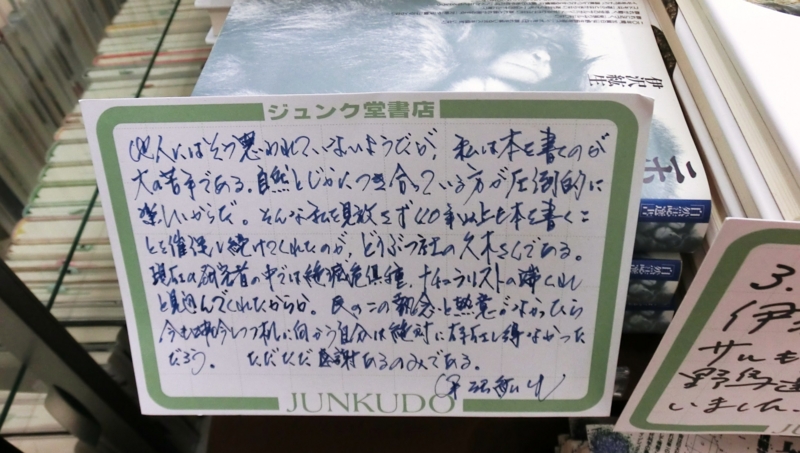 伊沢紘生
ニホ
自然誌選書
ジュンク堂書店
他人にはそう思われていないようだが、私は本を書くのが
大の苦手である。自然とじかにつき合っている方が圧倒的に
楽しいからだ。そんな私を見放さず40年以上も本を書くこ
とを催促し続けてくれたのが、どうぶつ社の久木さんである。
現在の研究者の中では絶滅危惧種、ナチュラリストの端くれ
と見込んでくれたからか。氏のこの執念と熱意がなかったら
今も呻吟しつつ机に向かう自分は絶対に存在し得なかった
だろう。ただただ感謝あるのみである。
伊沢紘生
JUNKUDO
3.
伊
サルも
野鳥
いました